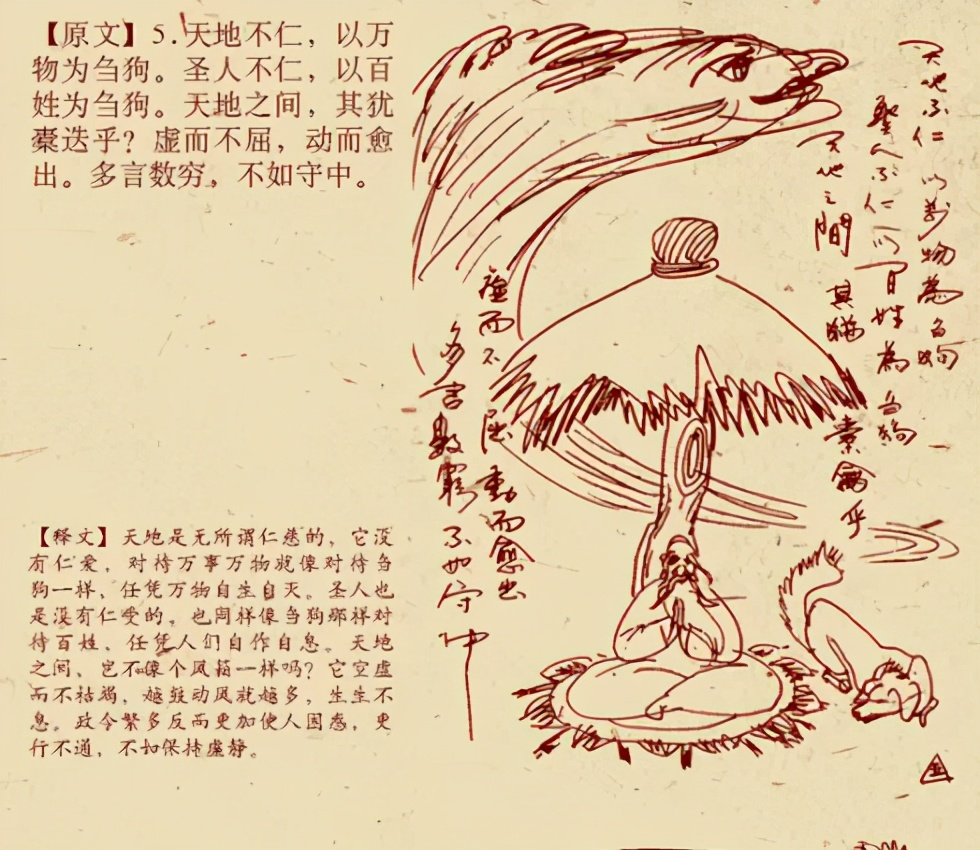 【原文】5.天地不仁，以万
物为刍狗。圣人不仁，以百
姓为刍狗。天地之间，其犹
橐迭乎？虚而不屈，动而愈
出。多言数穷，不如守中。
【释文】天地是无所谓仁慈的，它没
有仁爱，对待万事万物就像对待刍
狗一样，任凭万物自生自灭。圣人也
是没有仁爱的，也同样像刍狗那样对
待百姓，任凭人们自作自息。天地
之间，岂不像个风箱一样吗？它空虚
而不枯竭，越鼓动风就越多，生生不
息。政令繁多反而更加使人困惑，更
行不通，不如保持虚静。
天地不仁 以萬物為刍狗
聖人不仁 以百姓為刍狗
天地之間 其猶橐龠乎
虛而不屈 動而愈出
多言數窮 不如守中